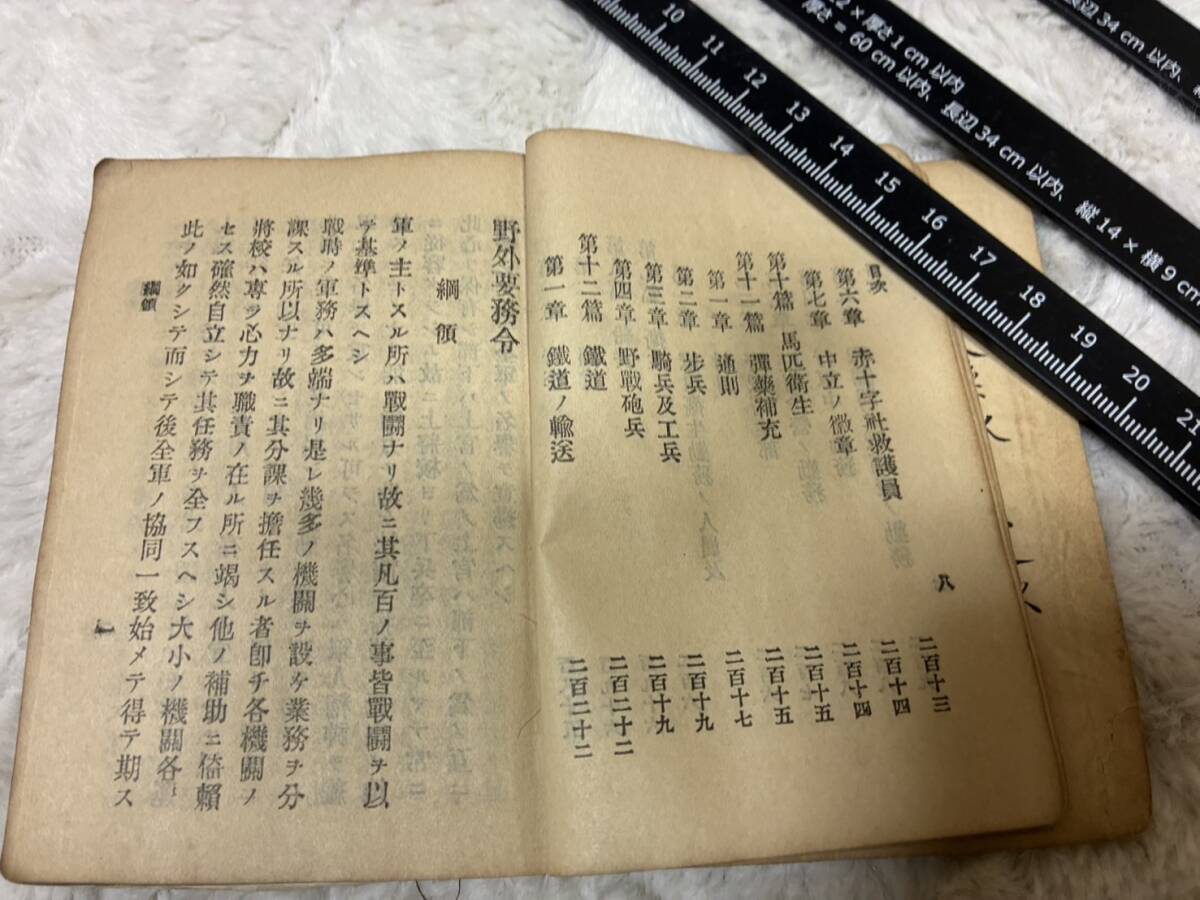 目次
八
第六章 赤十字社救護員ノ勤務 二百十三
第七章 中立ノ徽章 二百十四
第十篇 馬匹衛生 二百十四
第十一篇 彈藥補充 二百十五
第一章 通則 二百十五
第二章 步兵 二百十七
第三章 騎兵及工兵 二百十九
第四章 野戰砲兵 二百十九
第十二篇 鐵道 二百二十二
第一章 鐵道ノ輸送 二百二十二
野外要務令
綱領
軍ノ主トスル所ハ戰鬪ナリ故ニ其凡百ノ事皆戰鬪ヲ以
テ基準トスヘシ
戰時ノ軍務ハ多端ナリ是レ幾多ノ機關ヲ設ケ業務ヲ分
課スル所以ナリ故ニ其分課ヲ擔任スル者卽チ各機關ノ
將校ハ專ラ心力ヲ職責ノ在ル所ニ竭シ他ノ補助ニ倚賴
セス確然自立シテ其任務ヲ全フスヘシ大小ノ機關各〻
此ノ如クシテ而シテ後全軍ノ協同一致始メテ得テ期ス
綱領
一
10 11 12 13 14 15 16 17 18 19 20 21
2 × 厚さ 1 cm 以内
厚さ = 60 cm 以内、長辺 34 cm 以内、縦 14 × 横 9 cm
長辺 34 cm 以内、